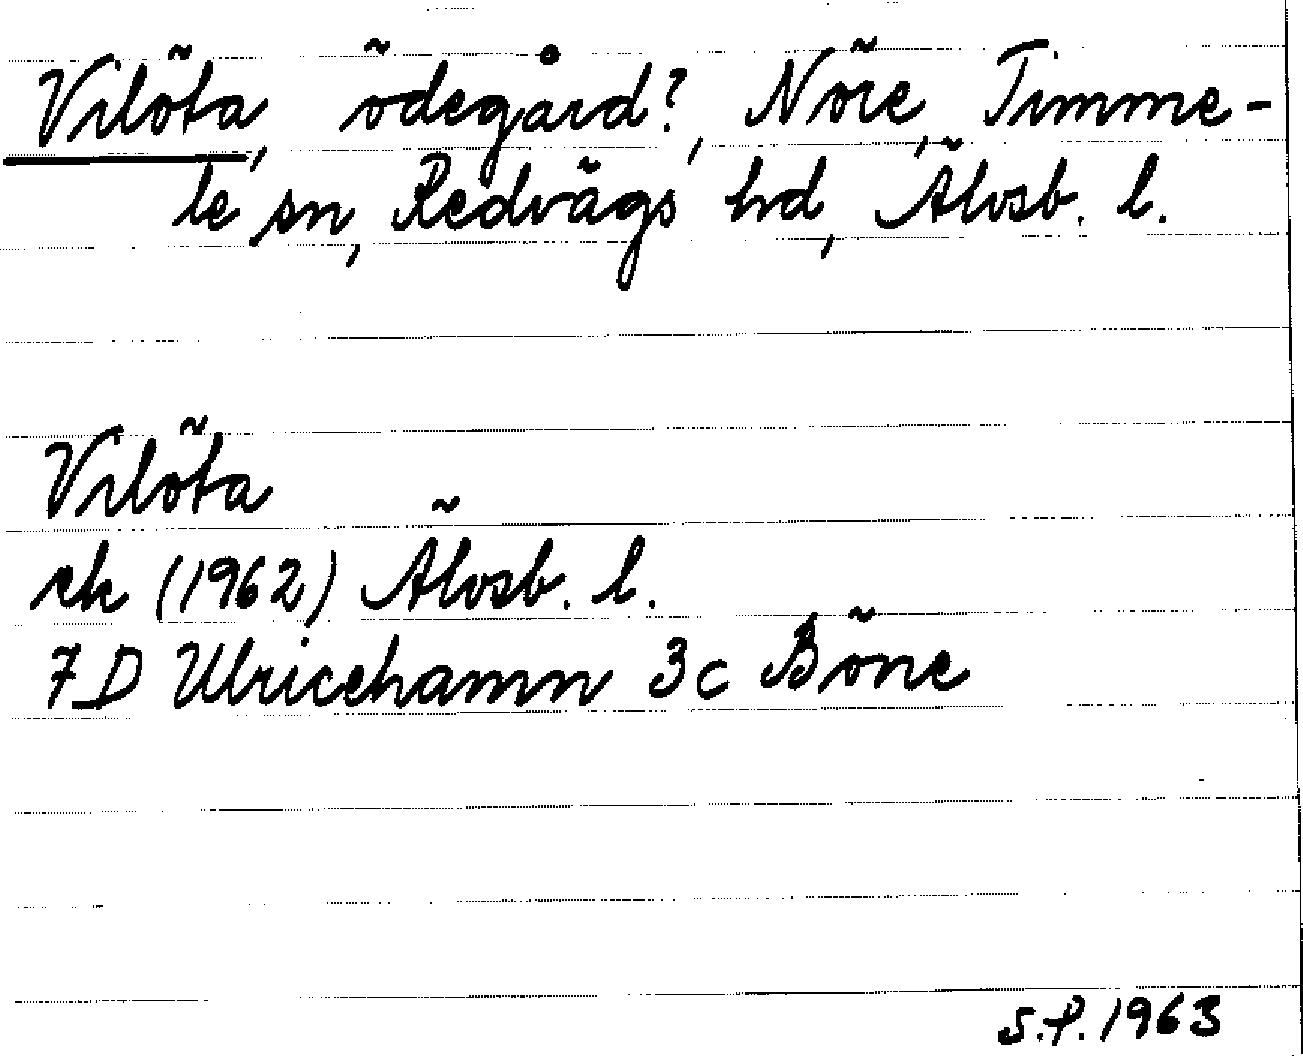 Vilöta, ödegård?, Nöre, Timme-
le sn, Redvägs hd, Älvsb. l.
Vilöta
ek (1962) Älvsb. l.
7D Ulricehamn 3c Böne
S.P. 1963